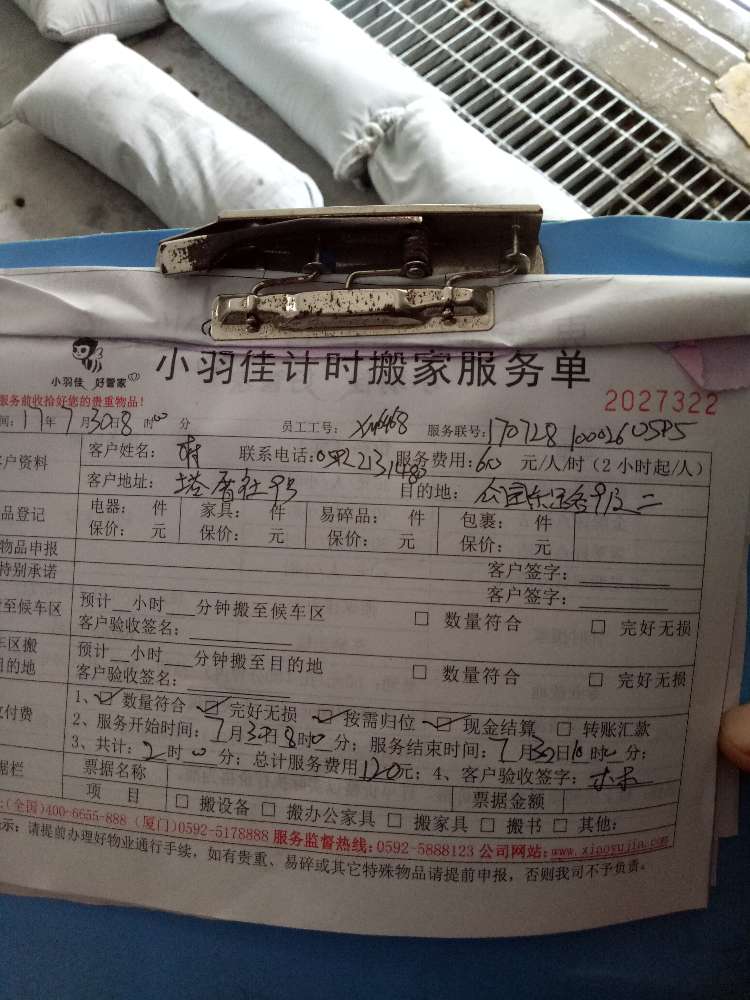 小羽佳 好管家
小羽佳计时搬家服务单
服务前收拾好您的贵重物品！
2027322
间：17年7月30日8时00分 员工工号： 服务联号：170728100026
户资料 客户姓名： 联系电话：0592213 服务费用：60元/人/时（2小时起/人）
客户地址：塔厝社9号 目的地：公园东
品登记 电器： 件 家具： 件 易碎品： 件 包裹： 件
保价： 元 保价： 元 保价： 元 保价： 元
物品申报 客户签字：
特别承诺 客户签字：
至候车区 预计 小时 分钟搬至候车区 □ 数量符合 □ 完好无损
客户验收签名：
车区搬 预计 小时 分钟搬至目的地 □ 数量符合 □ 完好无损
目的地 客户验收签名：
1、☑ 数量符合 ☑ 完好无损 ☑ 按需归位 ☑ 现金结算 □ 转账汇款
付费 2、服务开始时间：7月30日8时0分；服务结束时间：7月30日10时0分；
3、共计：2时0分；总计服务费用120元；4、客户验收签字：
据栏 票据名称 票据金额
项 目 □ 搬设备 □ 搬办公家具 □ 搬家具 □ 搬书 □ 其他：
：(全国)400-6655-888 (厦门)0592-5178888 服务监督热线：0592-5888123 公司网站：www.xiaoyujia.com
示：请提前办理好物业通行手续，如有贵重、易碎或其它特殊物品请提前申报，否则我司不予负责。